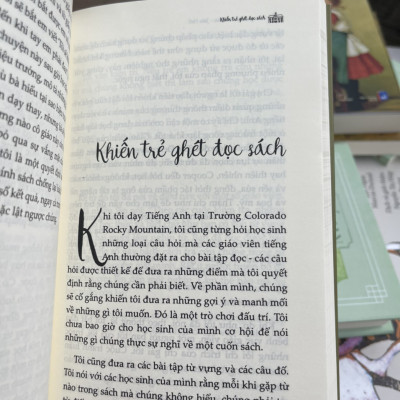 bắt đượ
sẽ bắn
khi tay em
chuyện này sau giờ
liệu trường, mô
ú bà hiểu tại sao
n dạy thay, nhưng
ừng nào cô giáo
bỏ qua sự vắng
tôi là một quyết
sách chống lại
số kết quả, ngay
ặc lật ngược chúng
Khiến trẻ ghét đọc sách
Khiến trẻ ghét đọc sách
Khi tôi dạy Tiếng Anh tại Trường Colorado
Rocky Mountain, tôi cũng từng hỏi học sinh
những loại câu hỏi mà các giáo viên tiếng
Anh thường đặt ra cho bài tập đọc - các câu
hỏi được thiết kế để đưa ra những điểm mà tôi quyết
định rằng chúng cần phải biết. Về phần mình, chúng
sẽ cố gắng khiến tôi đưa ra những gợi ý và manh mối
về những gì tôi muốn. Đó là một trò chơi đấu trí. Tôi
chưa bao giờ cho học sinh của mình cơ hội để nói
những gì chúng thực sự nghĩ về một cuốn sách.
Tôi cũng đưa ra các bài tập từ vựng và các câu đố.
Tôi nói với các học sinh của mình rằng mỗi khi gặp từ
nào trong sách mà chúng không hiểu, chúng phải